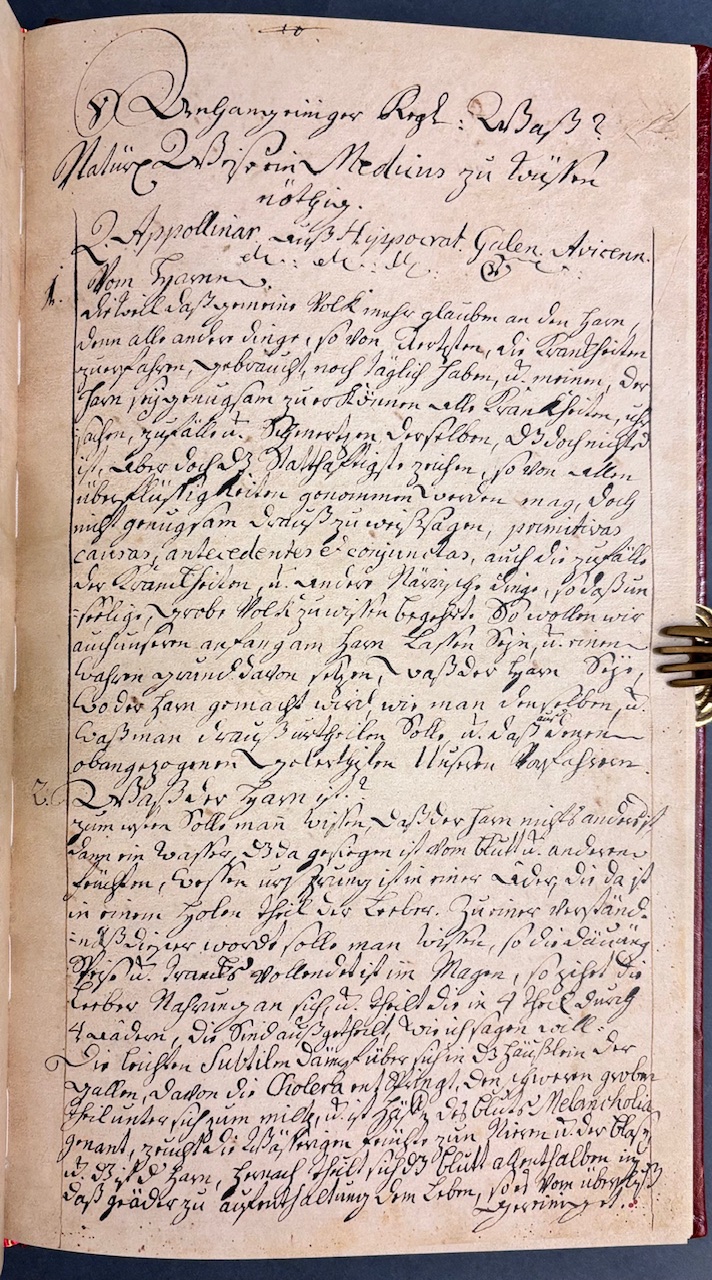 10
Anhang einiger Regl: Waß?
Natürl Weise ein Medicus zu wüssen
nöthig.
Q. Appollinar. auß Hyppocrat. Galen. Avicenn.
etc: etc:
1. Vom Harnen
Dieweil daß gemeine Volk mehr glauben an den Harn,
denn alle andere dinge, so von Aertzten, die Kranckheiten
zuerfahren, gebraucht, noch täglich haben, u. meinen, der
Harn sey genugsam zu erkönnen alle Kranckheiten, uhr
sachen, zufälle u. Schmertzen derselben, dz doch nichts
ist, Aber doch dz Statthafftigste zeichen, so von allen
überflüssigkeiten genommen werden mag, doch
nicht genugsam drauß zu weissagen, primitivas
causas, antecedentes & conjunctas, auch die zufälle
der Kranckheiten, u. andere Närrische dinge, so daß un
seelige, grobe Volk zu wissen begehrt. So wollen wir
auch unseren anfang am Harn lassen Seyn, u. einen
wahren grund davon setzen, waß der Harn Seye,
wo der Harn gemacht wird, wie man denselben, u.
waß man drauß urtheilen Solle, u. daß auß denen
obangezogenen gelerthsten Unseren Vorfahren.
2. Waß der Harn ist?
zum ersten Solle man wissen, daß der Harn nichts anders ist
dann ein Wasser, dz da gesiegen ist vom blutt u. anderen
feüchten, wessen ursprung ist in einer Ader, die da ist
in einem Holen Theil der Leeber. Zu einer verständ-
nuß dieser worte solle man wissen, so die däuung
Speise u. Trancks vollendet ist im Magen, so zihet die
Leeber Nahrung an sich, u. theilt die in 4 theil durch
4 Aderen, die Sind außgetheilt, wie ich sagen will:
Die leichten Subtilen dämpf über sich in dz Häußlein der
gallen, davon die Cholera entspringt, den schweren groben
theil unter sich zum miltz, u. ist Häffe des bluts Melancholia
genant, zeucht die Wässerigen feuchte zun Nieren u. der blase,
u. dz ist d Harn, Hernach theilt sich dz blutt allenthalben in
daß geäder zu aufenthaltung dem Leben, so es vom überfluß
gereiniget.